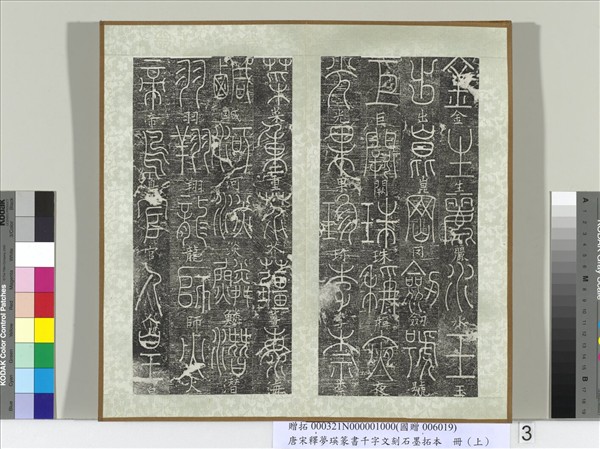 金生麗水玉
出崑岡劍號
巨闕珠稱夜
光果珍李柰
菜重芥薑海
鹹河淡鱗潛
羽翔龍師火
帝鳥官人皇
贈拓 000321N000001000(國贈 006019)
唐宋釋夢瑛篆書千字文刻石墨拓本 冊（上）
3
KODAK Color Control Patches
Kodak
KODAK Gray Scale
A
M
B